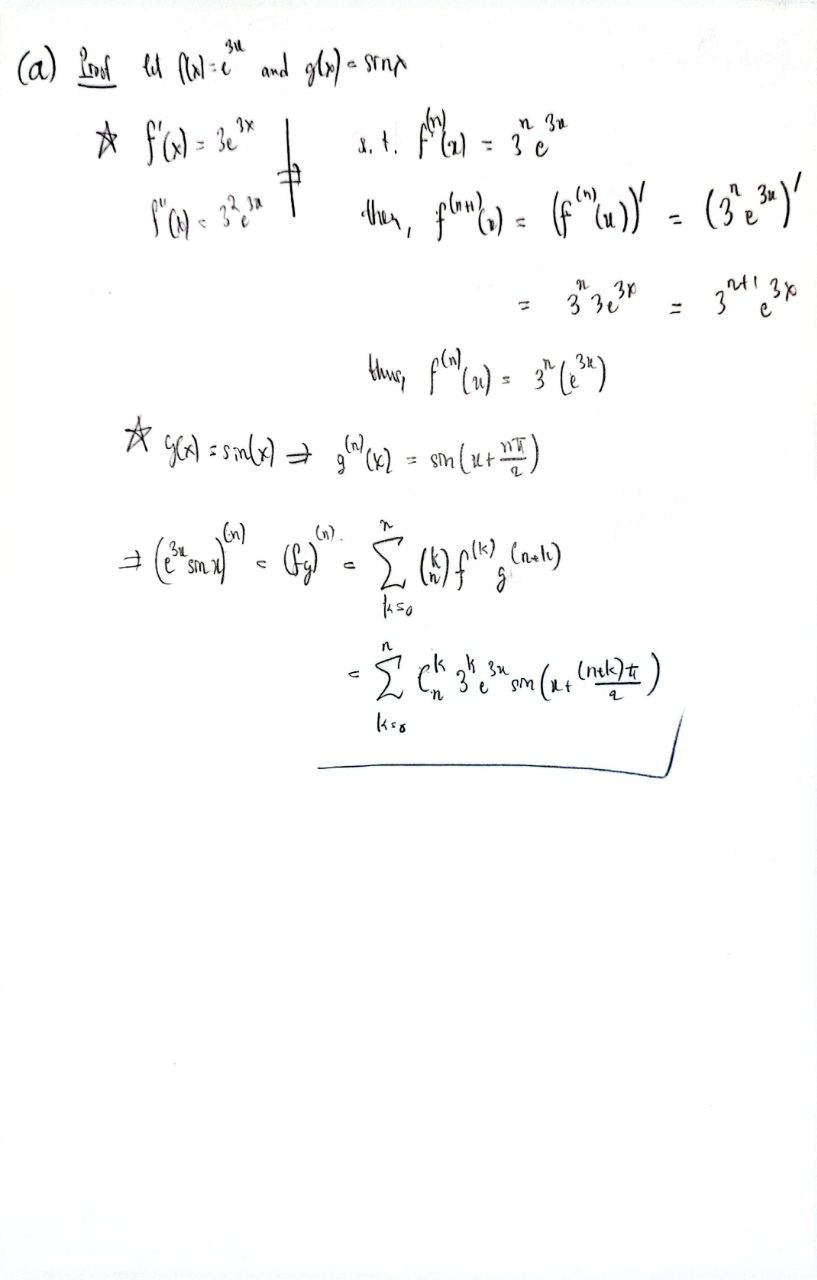 (a) Proof let f(x) = e^{3x} and g(x) = sinx
☆ f'(x) = 3e^{3x} ⇒ s.t. f^{(n)}(x) = 3^n e^{3x}
f''(x) = 3^2 e^{3x} then, f^{(n+1)}(x) = (f^{(n)}(x))' = (3^n e^{3x})'
= 3^n 3e^{3x} = 3^{n+1} e^{3x}
thus, f^{(n)}(x) = 3^n (e^{3x})
☆ g(x) = sin(x) ⇒ g^{(n)}(x) = sin(x + \frac{nπ}{2})
⇒ (e^{3x} sin x)^{(n)} = (fg)^{(n)} = \sum_{k=0}^{n} \binom{k}{n} f^{(k)} g^{(n+k)}
= \sum_{k=0}^{n} C_n^k 3^k e^{3x} sin(x + \frac{(n+k)π}{2})